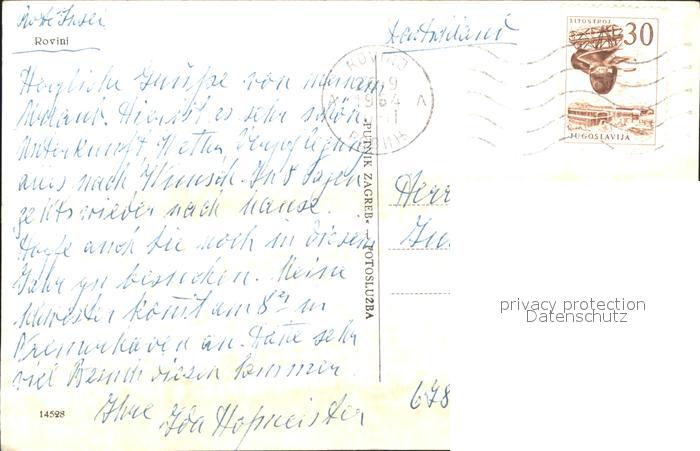 Rote Insel
Rovinj
Deutschland
LITOSTROJ
30
JUGOSLAVIJA
ROVINJ
1964
A A
ROVINJ
Herzliche Grüße von meinem
Urlaub. Hier ist es sehr schön.
Unterkunft Wetter Verpflegung
alles nach Wunsch. In 8 Tagen
geht's wieder nach hause.
Hoffe auch Sie noch in diesem
Jahr zu besuchen. Meine
Schwester kommt am 8ten in
Bremerhaven an. Hatte sehr
viel Besuch diesen Sommer.
Ihre Ida Hofmeister
14598
»PUTNIK ZAGREB« — FOTOSLUŽBA
Herr
678
privacy protection
Datenschutz